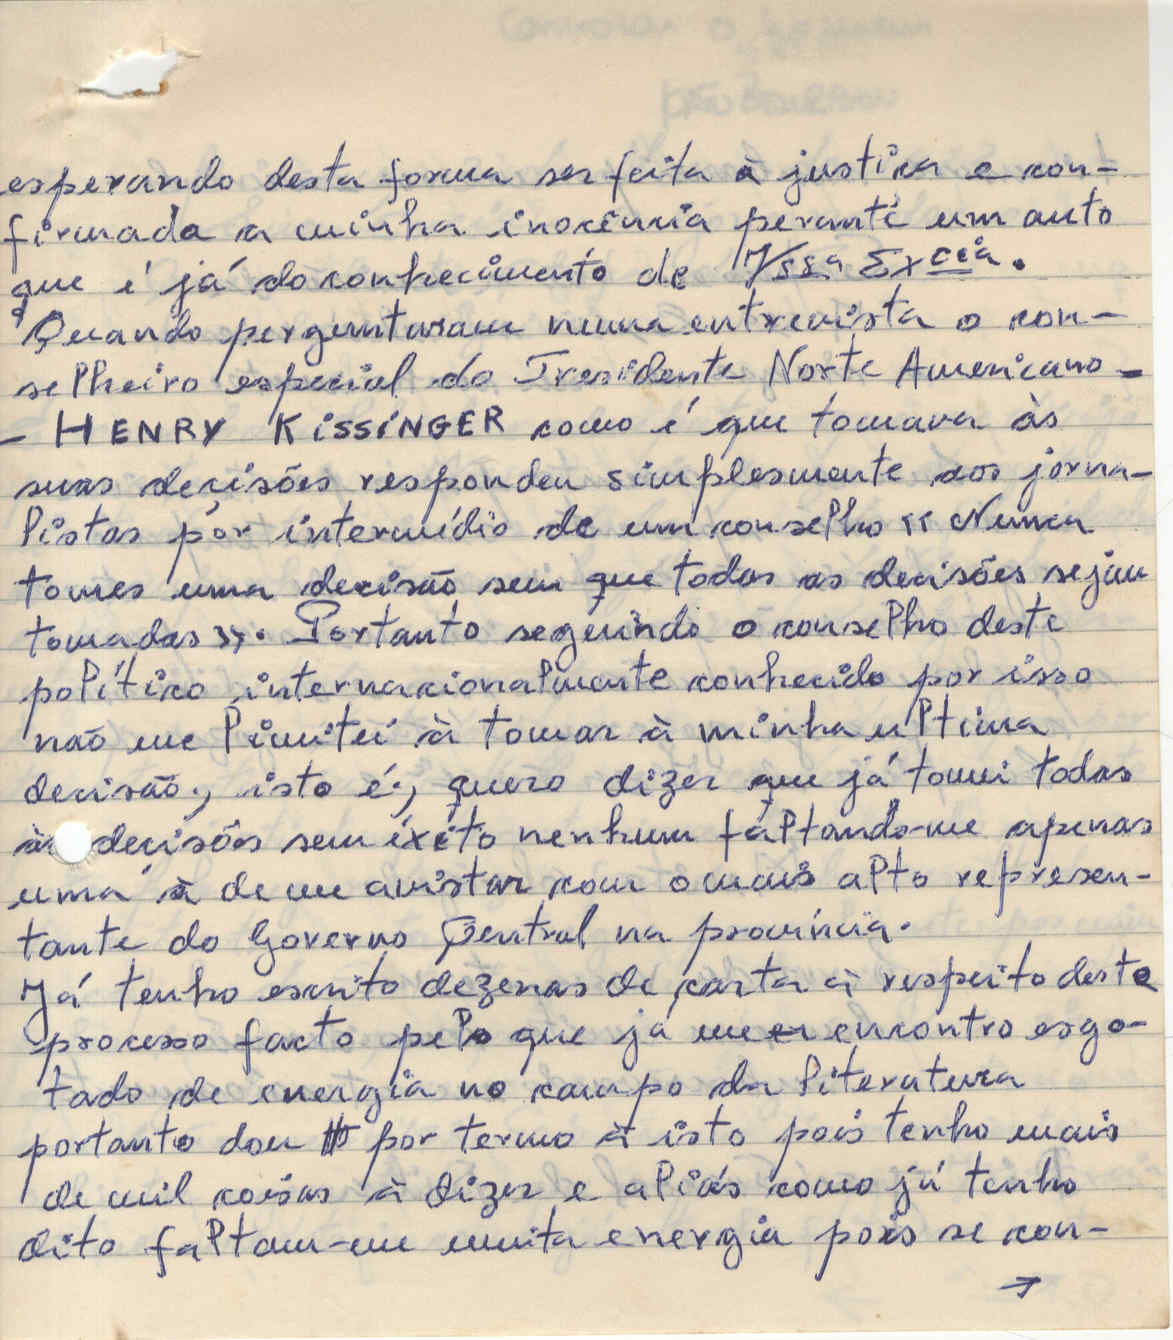 esperando desta forma ser feita à justica e con-
firmada a minha inocência perante um auto
que é já do conhecimento de Vssª Exciª.
Quando perguntaram numa entrevista o con-
selheiro especial do Presidente Norte Americano -
- HENRY KiSSiNGER como é que tomava às
suas decisões respondeu simplesmente aos jorna-
listas por intermédio de um conselho « Nunca
tomes uma decisão sem que todas as decisões sejam
tomadas ». Portanto seguindo o conselho deste
político internacionalmente conhecido por isso
não me limitei à tomar à minha ultima
decisão, isto é, quero dizer que já tomei todas
às decisões sem êxito nenhum faltando-me apenas
uma à de me avistar com o mais alto represen-
tante do Governo Central na província.
Já tenho escrito dezenas de carta à respeito deste
processo facto pelo que já me encontro esgo-
tado de energia no campo da literatura
portanto dou por termo à isto pois tenho mais
de mil coisas à dizer e aliás como já tenho
dito faltam-me muita energia pois se con-
→